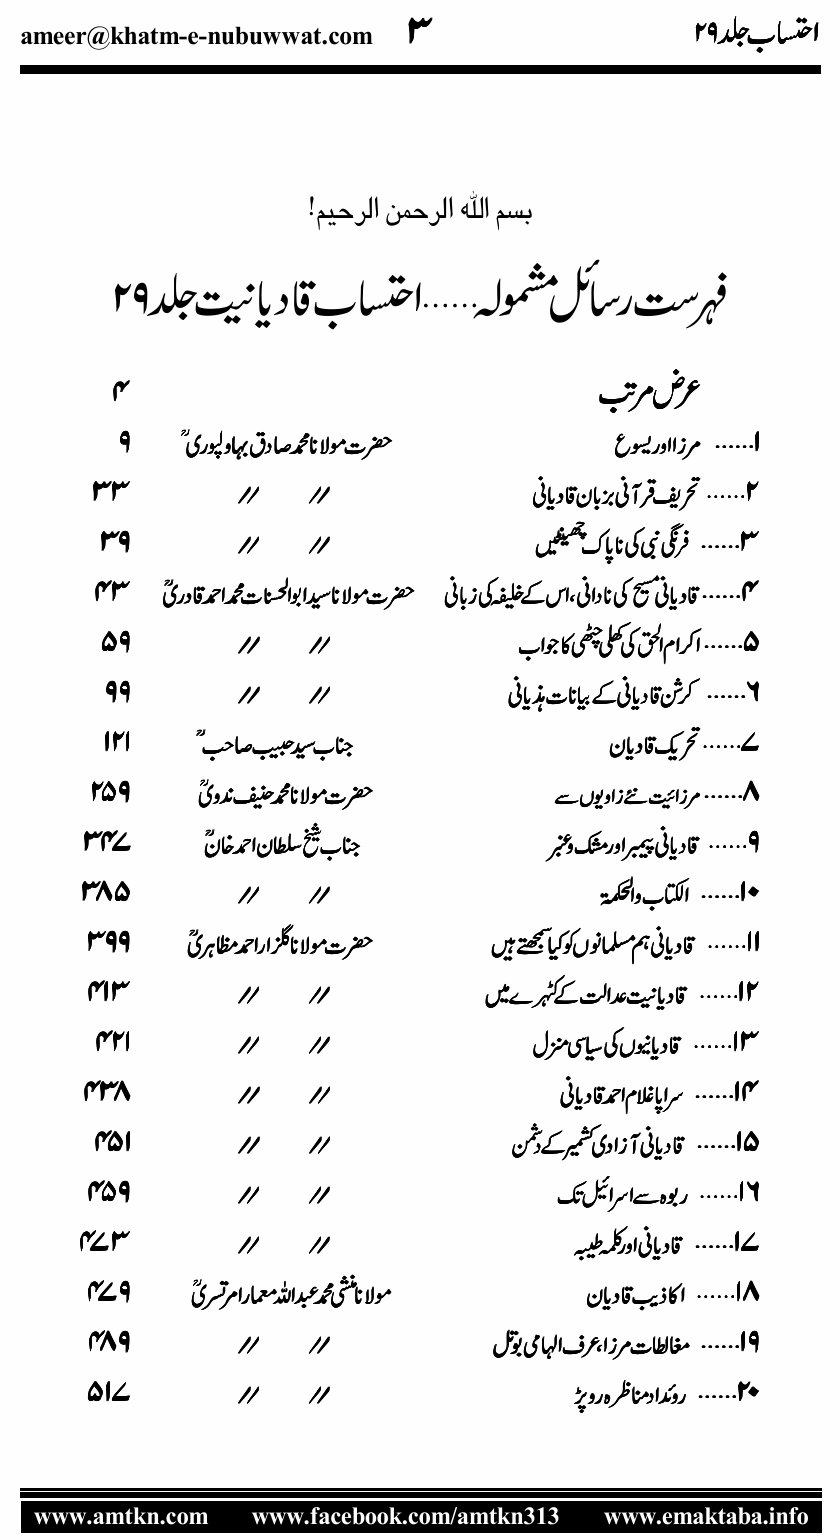 احتساب جلد ۲۹ ۳ ameer@khatm-e-nubuwwat.com
بسم الله الرحمن الرحیم!
فہرست رسائل مشمولہ......احتساب قادیانیت جلد ۲۹
عرض مرتب ۴
۱...... مرزا اور یسوع حضرت مولانا محمد صادق بہاولپوریؒ ۹
۲...... تحریف قرآنی بزبان قادیانی // // ۳۳
۳...... فرنگی نبی کی ناپاک چھینٹیں // // ۳۹
۴...... قادیانی مسیح کی نادانی، اس کے خلیفہ کی زبانی حضرت مولانا سید ابوالحسنات محمد احمد قادریؒ ۴۳
۵...... اکرام الحق کی کھلی چٹھی کا جواب // // ۵۹
۶...... کرشن قادیانی کے بیانات ہذیانی // // ۹۹
۷...... تحریک قادیان جناب سید حبیب صاحبؒ ۱۲۱
۸...... مرزائیت نئے زاویوں سے حضرت مولانا محمد حنیف ندویؒ ۲۵۹
۹...... قادیانی پیمبر اور مشک و عنبر جناب شیخ سلطان احمد خانؒ ۳۴۷
۱۰...... الکتاب والحکمة // // ۳۸۵
۱۱...... قادیانی ہم مسلمانوں کو کیا سمجھتے ہیں حضرت مولانا گلزار احمد مظاہریؒ ۳۹۹
۱۲...... قادیانیت عدالت کے کٹہرے میں // // ۴۱۳
۱۳...... قادیانیوں کی سیاسی منزل // // ۴۲۱
۱۴...... سراپا غلام احمد قادیانی // // ۴۳۸
۱۵...... قادیانی آزادی کشمیر کے دشمن // // ۴۵۱
۱۶...... ربوہ سے اسرائیل تک // // ۴۵۹
۱۷...... قادیانی اور کلمہ طیبہ // // ۴۷۳
۱۸...... اکاذیب قادیان مولانا منشی محمد عبداللہ معمار امرتسریؒ ۴۷۹
۱۹...... مغالطات مرزا، عرف الہامی بوتل // // ۴۸۹
۲۰...... روئداد مناظرہ روپڑ // // ۵۱۷
www.amtkn.com www.facebook.com/amtkn313 www.emaktaba.info